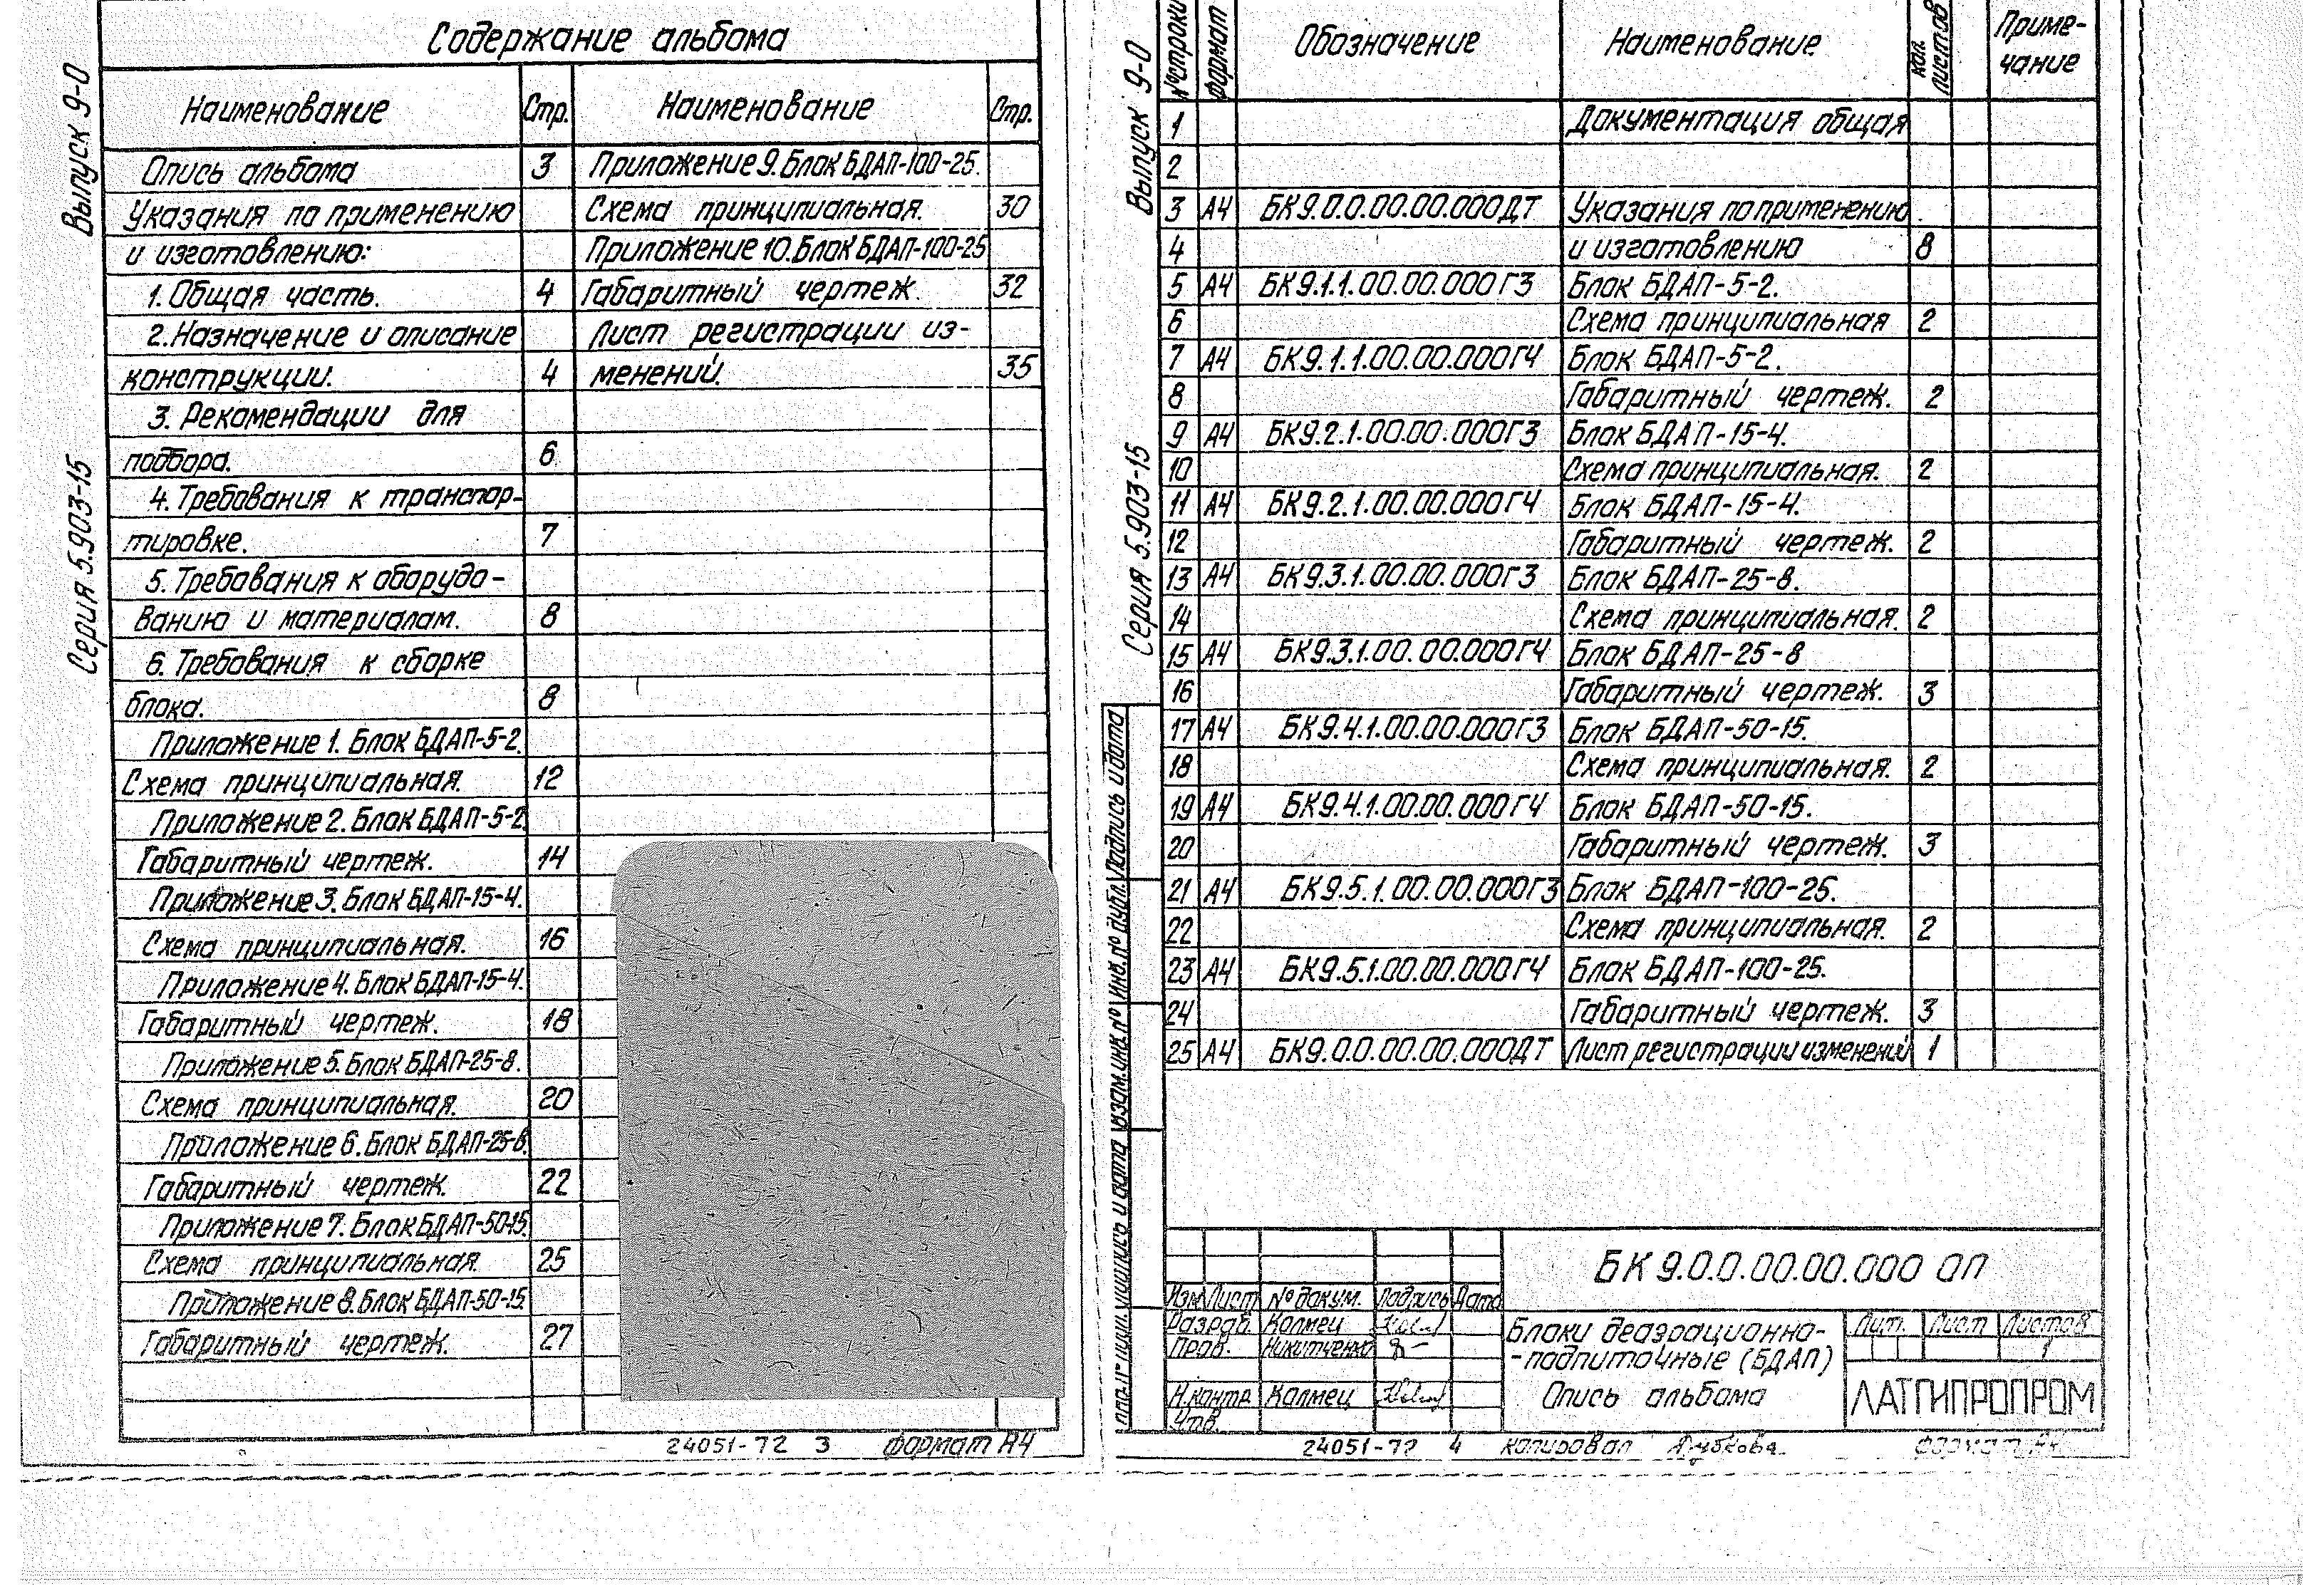 Содержание альбома
Наименование Стр. Наименование Стр.
Опись альбома 3 Приложение 9. Блок БДАП-100-25.
Указания по применению Схема принципиальная. 30
и изготовлению: Приложение 10. Блок БДАП-100-25
1. Общая часть. 4 Габаритный чертеж. 32
2. Назначение и описание Лист регистрации из-
конструкции. 4 менений. 35
3. Рекомендации для
подбора. 6
4. Требования к транспор-
тировке. 7
5. Требования к оборудо-
ванию и материалам. 8
6. Требования к сборке
блока. 8
Приложение 1. Блок БДАП-5-2.
Схема принципиальная. 12
Приложение 2. Блок БДАП-5-2.
Габаритный чертеж. 14
Приложение 3. Блок БДАП-15-4.
Схема принципиальная. 16
Приложение 4. Блок БДАП-15-4.
Габаритный чертеж. 18
Приложение 5. Блок БДАП-25-8.
Схема принципиальная. 20
Приложение 6. Блок БДАП-25-8.
Габаритный чертеж. 22
Приложение 7. Блок БДАП-50-15.
Схема принципиальная 25
Приложение 8. Блок БДАП-50-15.
Габаритный чертеж. 27
24051-72 3 формат А4
Серия 5.903-15 Выпуск 9-0
№ строки формат Обозначение Наименование кол. листов Приме-
чание
1 Документация общая
2
3 А4 БК9.0.0.00.00.000ДТ Указания по применению
4 и изготовлению 8
5 А4 БК9.1.1.00.00.000Г3 Блок БДАП-5-2.
6 Схема принципиальная 2
7 А4 БК9.1.1.00.00.000ГЧ Блок БДАП-5-2.
8 Габаритный чертеж. 2
9 А4 БК9.2.1.00.00.000Г3 Блок БДАП-15-4.
10 Схема принципиальная. 2
11 А4 БК9.2.1.00.00.000ГЧ Блок БДАП-15-4.
12 Габаритный чертеж. 2
13 А4 БК9.3.1.00.00.000Г3 Блок БДАП-25-8.
14 Схема принципиальная. 2
15 А4 БК9.3.1.00.00.000ГЧ Блок БДАП-25-8
16 Габаритный чертеж. 3
17 А4 БК9.4.1.00.00.000Г3 Блок БДАП-50-15.
18 Схема принципиальная. 2
19 А4 БК9.4.1.00.00.000ГЧ Блок БДАП-50-15.
20 Габаритный чертеж. 3
21 А4 БК9.5.1.00.00.000Г3 Блок БДАП-100-25.
22 Схема принципиальная. 2
23 А4 БК9.5.1.00.00.000ГЧ Блок БДАП-100-25.
24 Габаритный чертеж. 3
25 А4 БК9.0.0.00.00.000ДТ Лист регистрации изменений 1
Серия 5.903-15 Выпуск 9-0
Подпись и дата
Инв. № дубл.
Взам. инв. №
Подпись и дата
БК9.0.0.00.00.000 ОП
Изм Лист № докум. Подпись Дата
Разраб. Калмец
Пров. Никитченко
Н.контр. Калмец
Утв.
Блоки деаэрационно-
-подпиточные (БДАП)
Опись альбома
Лит. Лист Листов
1
ЛАТГИПРОПРОМ
24051-72 4 копировал формат А4